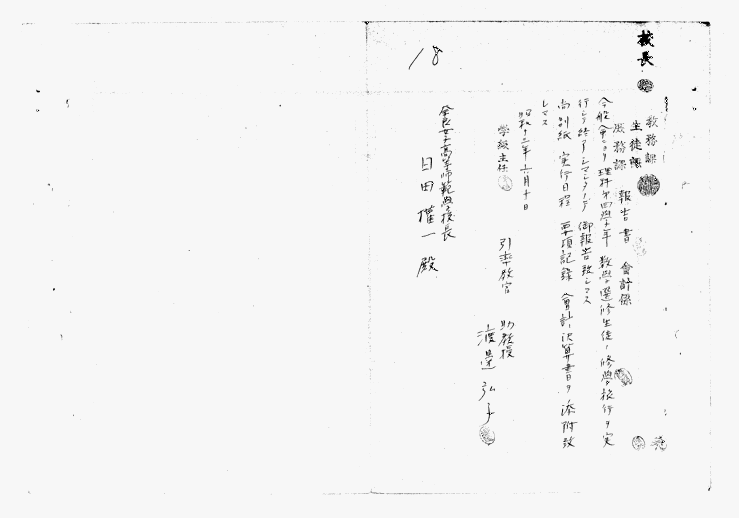 18
校長
教務課
生徒課
庶務課
報告書
會計係
今般命ニヨリ理科第四學年 數學選修生徒ノ修學旅行ヲ実
行シ終了シマシタノデ御報告致シマス
尚別紙 実行日程 要項記録 會計決算書ヲ添附致
シマス
昭和十二年六月十日
学級主任
引率教官
助教授
渡邊弘子
奈良女子高等師範學校長
日田權一殿